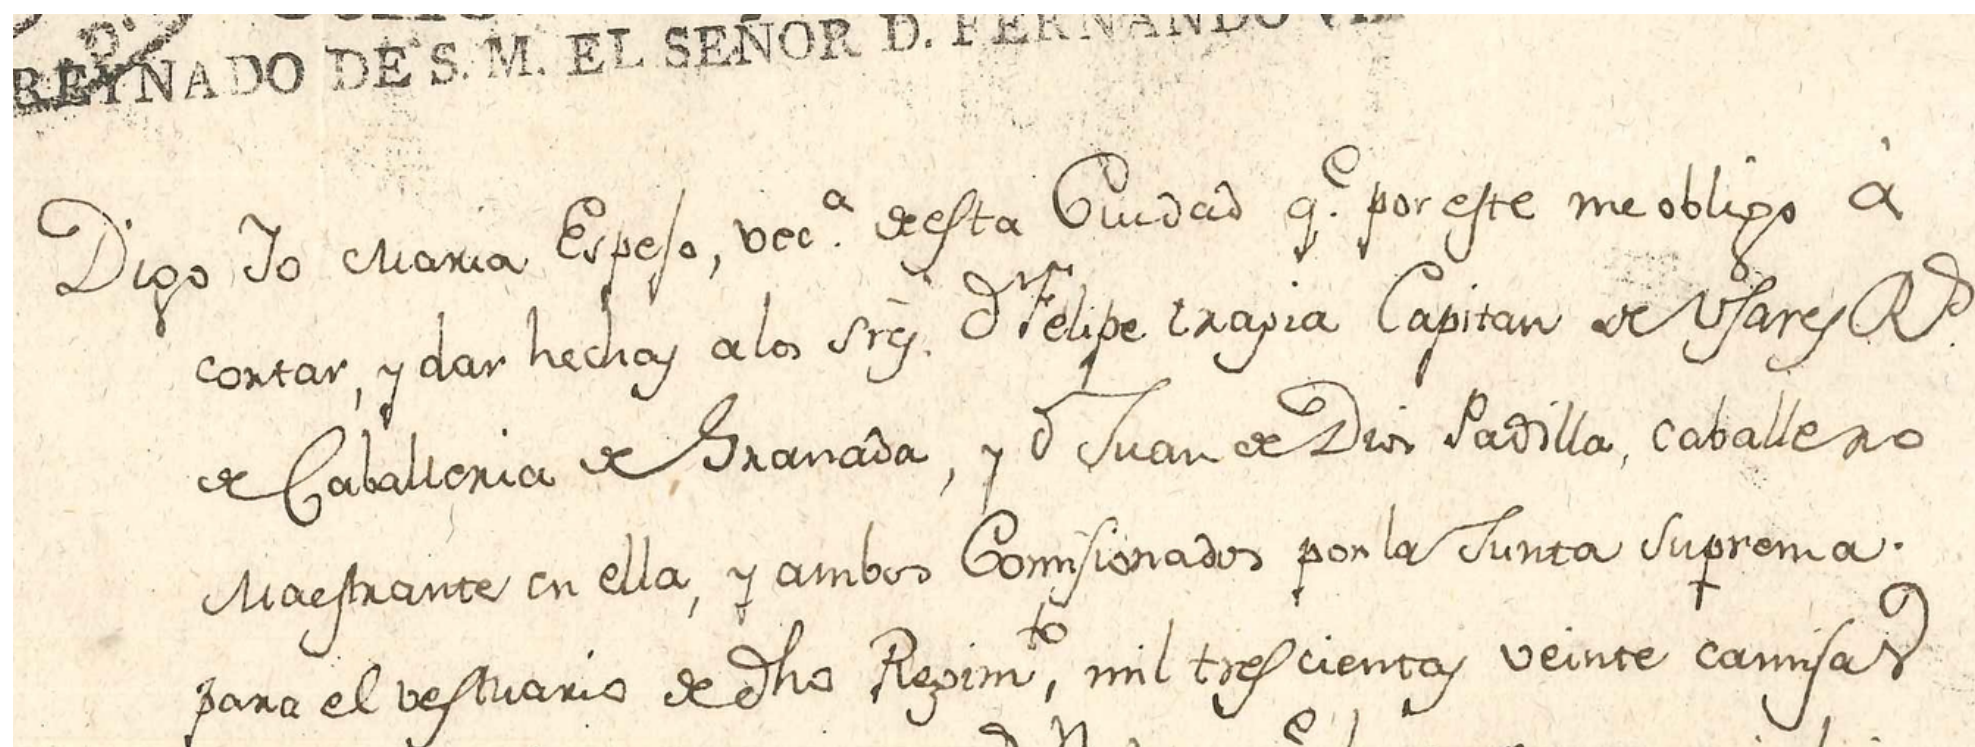 REYNADO DE S. M. EL SEÑOR D. FERNANDO VII
Digo Io Maria Espeso, vec.ª de esta Ciudad q.e por este me obligo à
cortar, y dar hechas a los Sres. Dn Felipe trapia Capitan de Usares Rl
de Caballeria de Granada, y dn Juan de Dios Padilla, caballero
Maestrante en ella, y ambos Comisionados por la Junta Suprema.
para el vestuario de dho Regim.to, mil trescientas veinte camisas